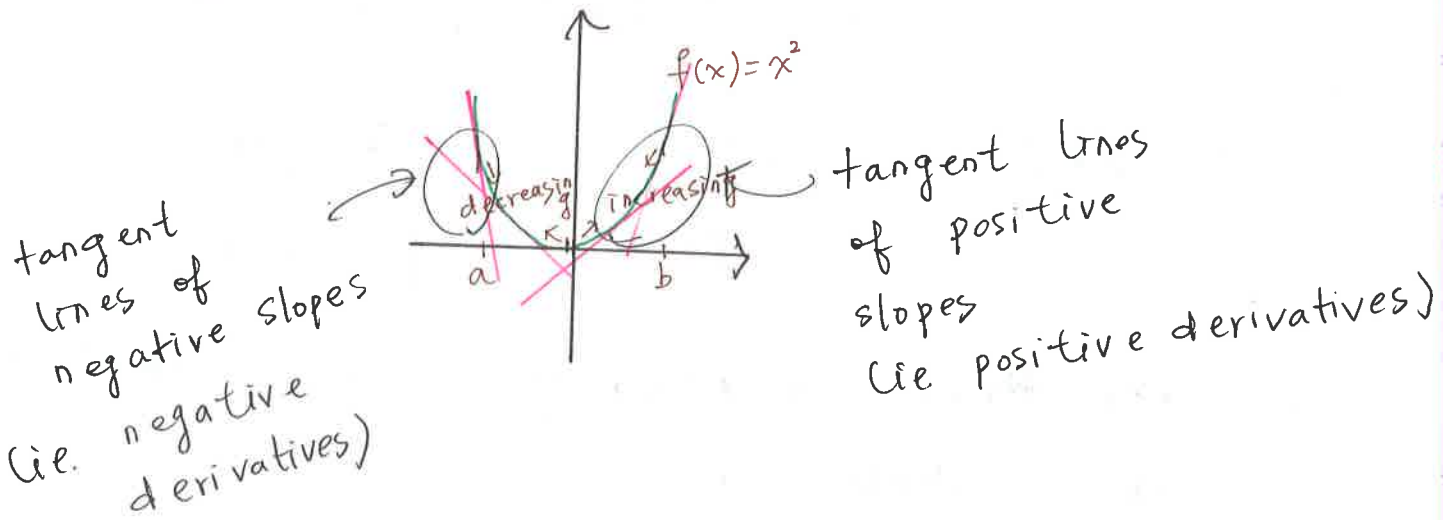 f(x) = x²
decreasing
increasing
a
b
tangent
lines of
negative slopes
(ie. negative
derivatives)
tangent lines
of positive
slopes
(ie positive derivatives)